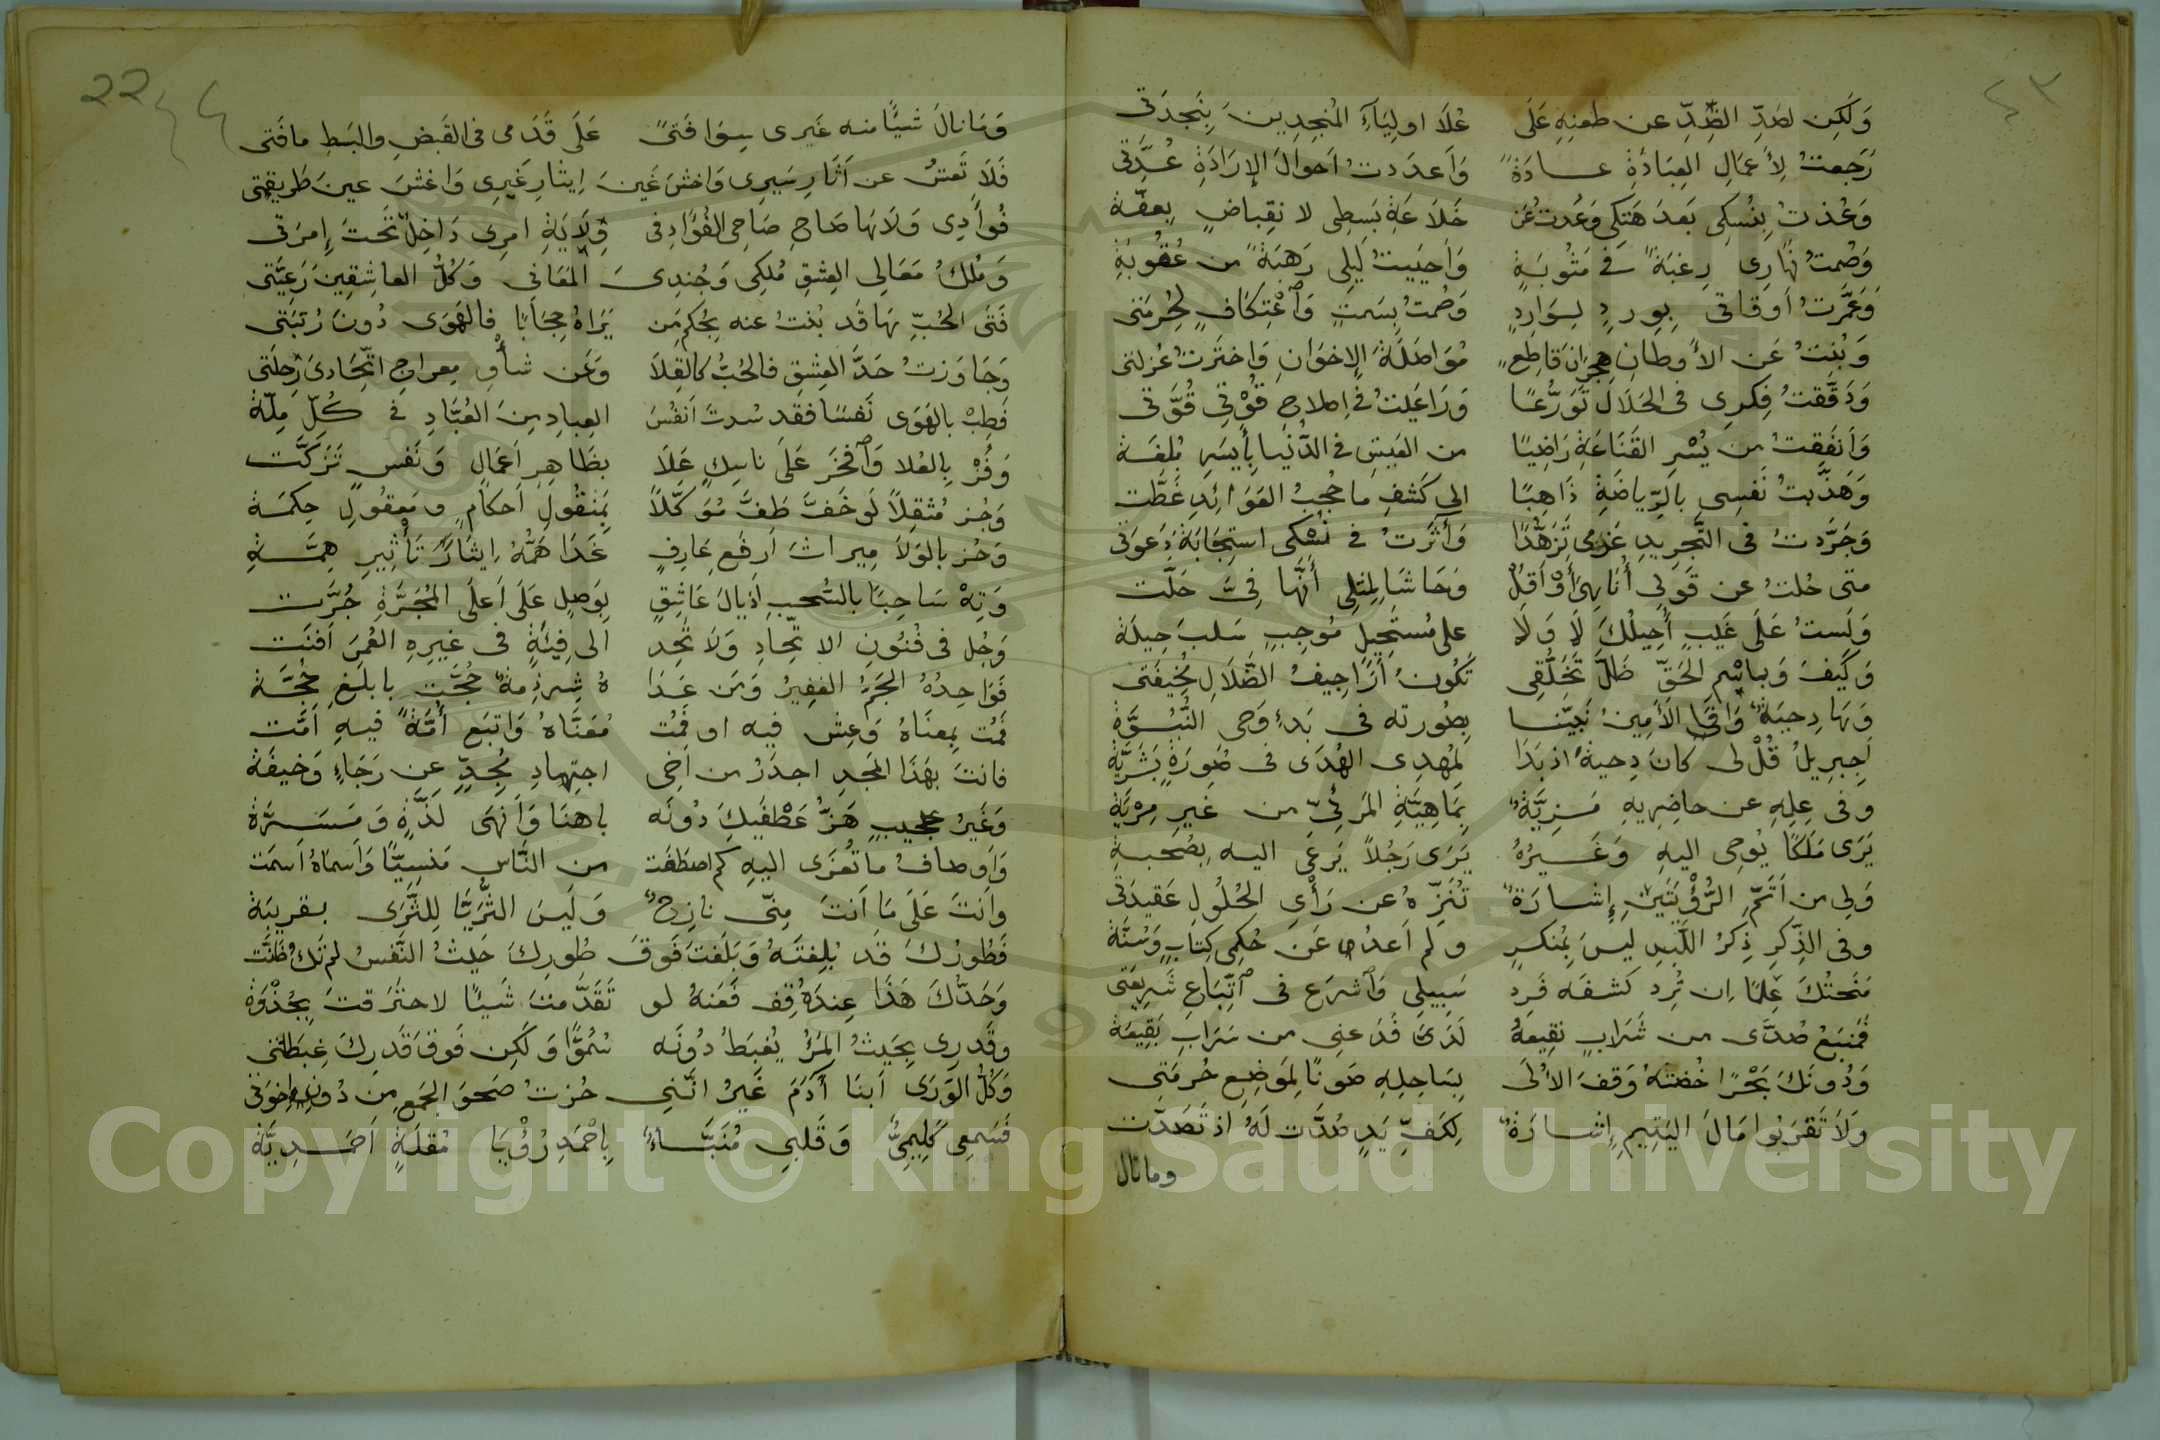 ٤٣
وَلَكِن لصَدِّ الضِّدِّ عن طعنِهِ عَلَى عُلَا اوليَآءَ المُنجِدِينَ بِنَجدَتى
رَجَعتُ لِأَعمَالِ العِبَادَةِ عــادَةً وَأعدَدتُ اَحوالَ الإرَادَةِ عُدَّتى
وَعُذتُ بِنُسكى بَعدَ هَتكى وَعُدتُ مَن خَلَاعَةِ بَسطِى لانقِباضٍ بِعفّة
وَصُمتُ نَهارِى رغبَةً فى مَثُوبَةٍ وَاَحيَيتُ لَيلِى رَهبَةً من عُقُوبَةِ
وَعَمَّرتُ اَوقاتى بِورِدٍ لِوَارِدٍ وَصُمتُ بِسَمتٍ وَٱعْتِكَافٍ لِحُرمَتى
وَبِنتُ عَن الأوطانِ هِجرَانَ قَاطِعٍ مُوَاصَلَةَ الإِخوَانِ وَاختَرتُ عُزلتى
وَدَقَّقتُ فِكرِى فى الحَلَال تَوَرُّعًا وَرَاعَيتُ فى اِصلاحِ قُوْتِي قُوَّتى
وَاَنفَقتُ من يُسْرِ القَنَاعَةِ رَاضِيًا من العَيشِ فى الدُّنيا بِأَيسَرِ بُلغَـة
وَهَذَّبتُ نَفسِى بالرِّياضَةِ ذَاهِبًا الى كَشفِ ما حُجبُ العَوَائِدِ غَطَّت
وَجَرَّدتُ فى التَّجرِيدِ عَزمى تَزَهُّدًا وَآثَرتُ فى نُسْكى استِجَابَةَ دَعوَتى
متى حُلتُ عن قَولى أَنَا هِىَ أَوْ أَقُلْ وَحَاشَا لِمثلِى أَنَّها فِىَّ حَلَّت
وَلَستُ عَلَى غَيبٍ أُحِيلُكَ لَا وَلَا على مُستَحِيلٍ مُوجِبٍ سَلبَ حِيلَة
وَكَيفَ وَباسْمِ الحَقِّ ظَلَّ تَخَلُّقِى تَكُونُ أَرَاجِيفُ الضَّلَالِ مُخِيفَتى
وَهَا دِحيَةٌ وَافَى الاَمِينُ نَبيَّنـا بِصُورته فى بَدءِ وَحى النُّبُـوَّة
اَجِبرِيلُ قُلْ لى كانَ دِحيةً اذ بَدَا لِمُهدِى الهُدَى فى صُورَةٍ بَشَرِيَّةِ
وفى عِلمِهِ عن حاضِرِيهِ مَـزِيَّةٌ بِمَاهِيَّةِ المَرئِىّ من غيرِ مِرْيَةِ
يَرَى مَلَكًا يُوحِى اليهِ وَغَــيرُهُ يَرَى رَجُلاً يَرعَى اليـه بِصُحبـةِ
وَلِى من اَتَمِّ الرُّؤْيَتَينِ إِشــارَةٌ تُنَزِّهُ عن رَأْىِ الحُلُولِ عَقيدَتى
وفى الذِّكرِ ذِكرُ اللَّبسِ ليسَ بِمُنكرٍ ولم اَعدُ عَن حُكمى كِتَابٍ وَسُنَّة
مَنَحتُكَ عِلمًا ان تُرِد كَشفَه فَرِد سَبِيلِى وَٱشرَع فى ٱتِّبَاعِ شَرِيعَتى
فَمَنبَعُ صُدَّى من شَرَابٍ نَقِيعهُ لَدَىَّ فَدَعنى من سَرَابٍ بَقِيعَة
وَدُونَكَ بَحْرًا خُضتهُ وَقفَ الأُلَى بِسَاحِلِهِ صَونًا لِمَوضِعِ حُرمَتِى
وَلَا تَقرَبُوا مَالَ اليَتِيمِ إِشـارَةٌ لِكَفِّ يَدٍ صُدَّت لَهُ اذ تَصَدَّت
ومانال
22 ٤٤
وَمَانالَ شَيًّا منه غَيرى سِوَا فَتىً عَلَى قَدَمى فى القَبضِ والبَسطِ مافَتى
فَلَا تَعشُ عن آثَارِ سَيرِى وَاخشَ غَينَ اِيثارِ غَيرِى وَاغشَ عينَ طَرِيقتى
فُؤَادِى وَلَاهَا صَاحِ صَاحِى الفُؤَادِ فى وِلَايَةِ امرِى دَاخِلٌ تَحتَ إمرَتى
وَمُلكُ مَعَالى العِشقِ مُلكِى وَجُندِىَ المَعَانى وَكُلُّ العاشِقِينَ رَعِيَّتى
فَتَى الحُبِّ هَا قَد بُنتُ عنه بِحُكمِ مَن يَرَاهُ حِجَابًا فالهَوَى دُونَ رُتبَتى
وَجَاوَزتُ حَدَّ العِشقِ فالحُبُّ كالقِلَا وَعَن شأْوِ مِعراجِ اتِّحَادى رِحلَتى
فَطِبْ بالهَوَى نَفسًا فقَد سُدتَ اَنفُسَ العِبادِ مِنَ العُبَّادِ فى كُلِّ مِلَّة
وَفُزْ بِالعُلا وَٱفخَر عَلَى ناسِكٍ عَلَا بظَاهِرِ اَعمَالٍ وَنَفسٍ تَزَكَّت
وَجُز مُثقَلاً لَو خَفَّ طَفَّ مُوَكَّلاً بِمَنقُولِ اَحكامٍ ومَعقُولِ حِكمَـة
وَحُز بالوَلَا مِيراثَ اَرفَعِ عَارِفٍ غَدَا هَمُّهُ اِيثَارَ تَأْثِيرِ هِمَّــةِ
وَتِهْ سَاحِبًا بالسُّحبِ اَذيالَ عَاشِقٍ بِوَصلٍ عَلَى اَعلَى المَجَرَّةِ جُرَّت
وَجُل فى فُنُونِ الاتِّحادِ وَلَا تَحِد الى فِئَةٍ فى غيرِهِ العُمرَ اَفنَت
فَوَاحِدُهُ الجَمُّ الغفِيرُ وَمَن غَـدَا هُ شِرذِمةٌ حُجَّت بابلَغِ حُجَّـة
فَمُت بِمعنَاهُ وَعِش فيه او فَمُت مُعَنَّاهُ وَاتبَع أُمَّةً فيهِ اَمَّت
فانتَ بِهَذَا المَجدِ اجدَرُ من اَخى اجتِهادٍ مُجِدٍّ عن رَجَاءٍ وَخيفَة
وَغَيرُ عجيبٍ هَزُّ عَطْفَيكَ دُونَه باهنَا وَاَنهَى لَذَّةٍ وَمَســرَّة
وَاَوصافُ ما تُعزَى اليهِ كم اصطَفَت من النَّاس مَنسِيًّا وَاَسماهُ اَسمَت
وَانتَ عَلَى مَا اَنتَ مِنّى نازِحٌ وَلَيسَ الثُّرَيَّا لِلثَّرَى بقرِينَة
فَطُورُكَ قَد بُلِغتَهُ وَبَلَغتَ فَوقَ طُورِكَ حَيثُ النَّفسُ لم تَكُ ظَنَّت
وَحَدُّكَ هَذَا عِندَهُ قِف فَعَنهُ لو تَقَدَّمتَ شَيئًا لاحتَرَقتَ بِجُذْوَة
وَقَدرِى بِحَيثُ المَرءُ يُغبَطُ دُونَه سُمُوًّا وَلَكِن فَوقَ قَدرِكَ غِبطَتى
وَكُلُّ الوَرَى اَبنَا أَدَمَ غَيرُ انَّنى حُزتُ صَحوَ الجَمعِ مِن دُونِ اِخوَتى
فَسَمعِى كَلِيمِىٌّ وَقَلبى مُنَبَّــاءٌ بِاَحْمَدِ رُؤْيَا مُقلَةٍ اَحمَـدِيَّة
Copyright © King Saud University